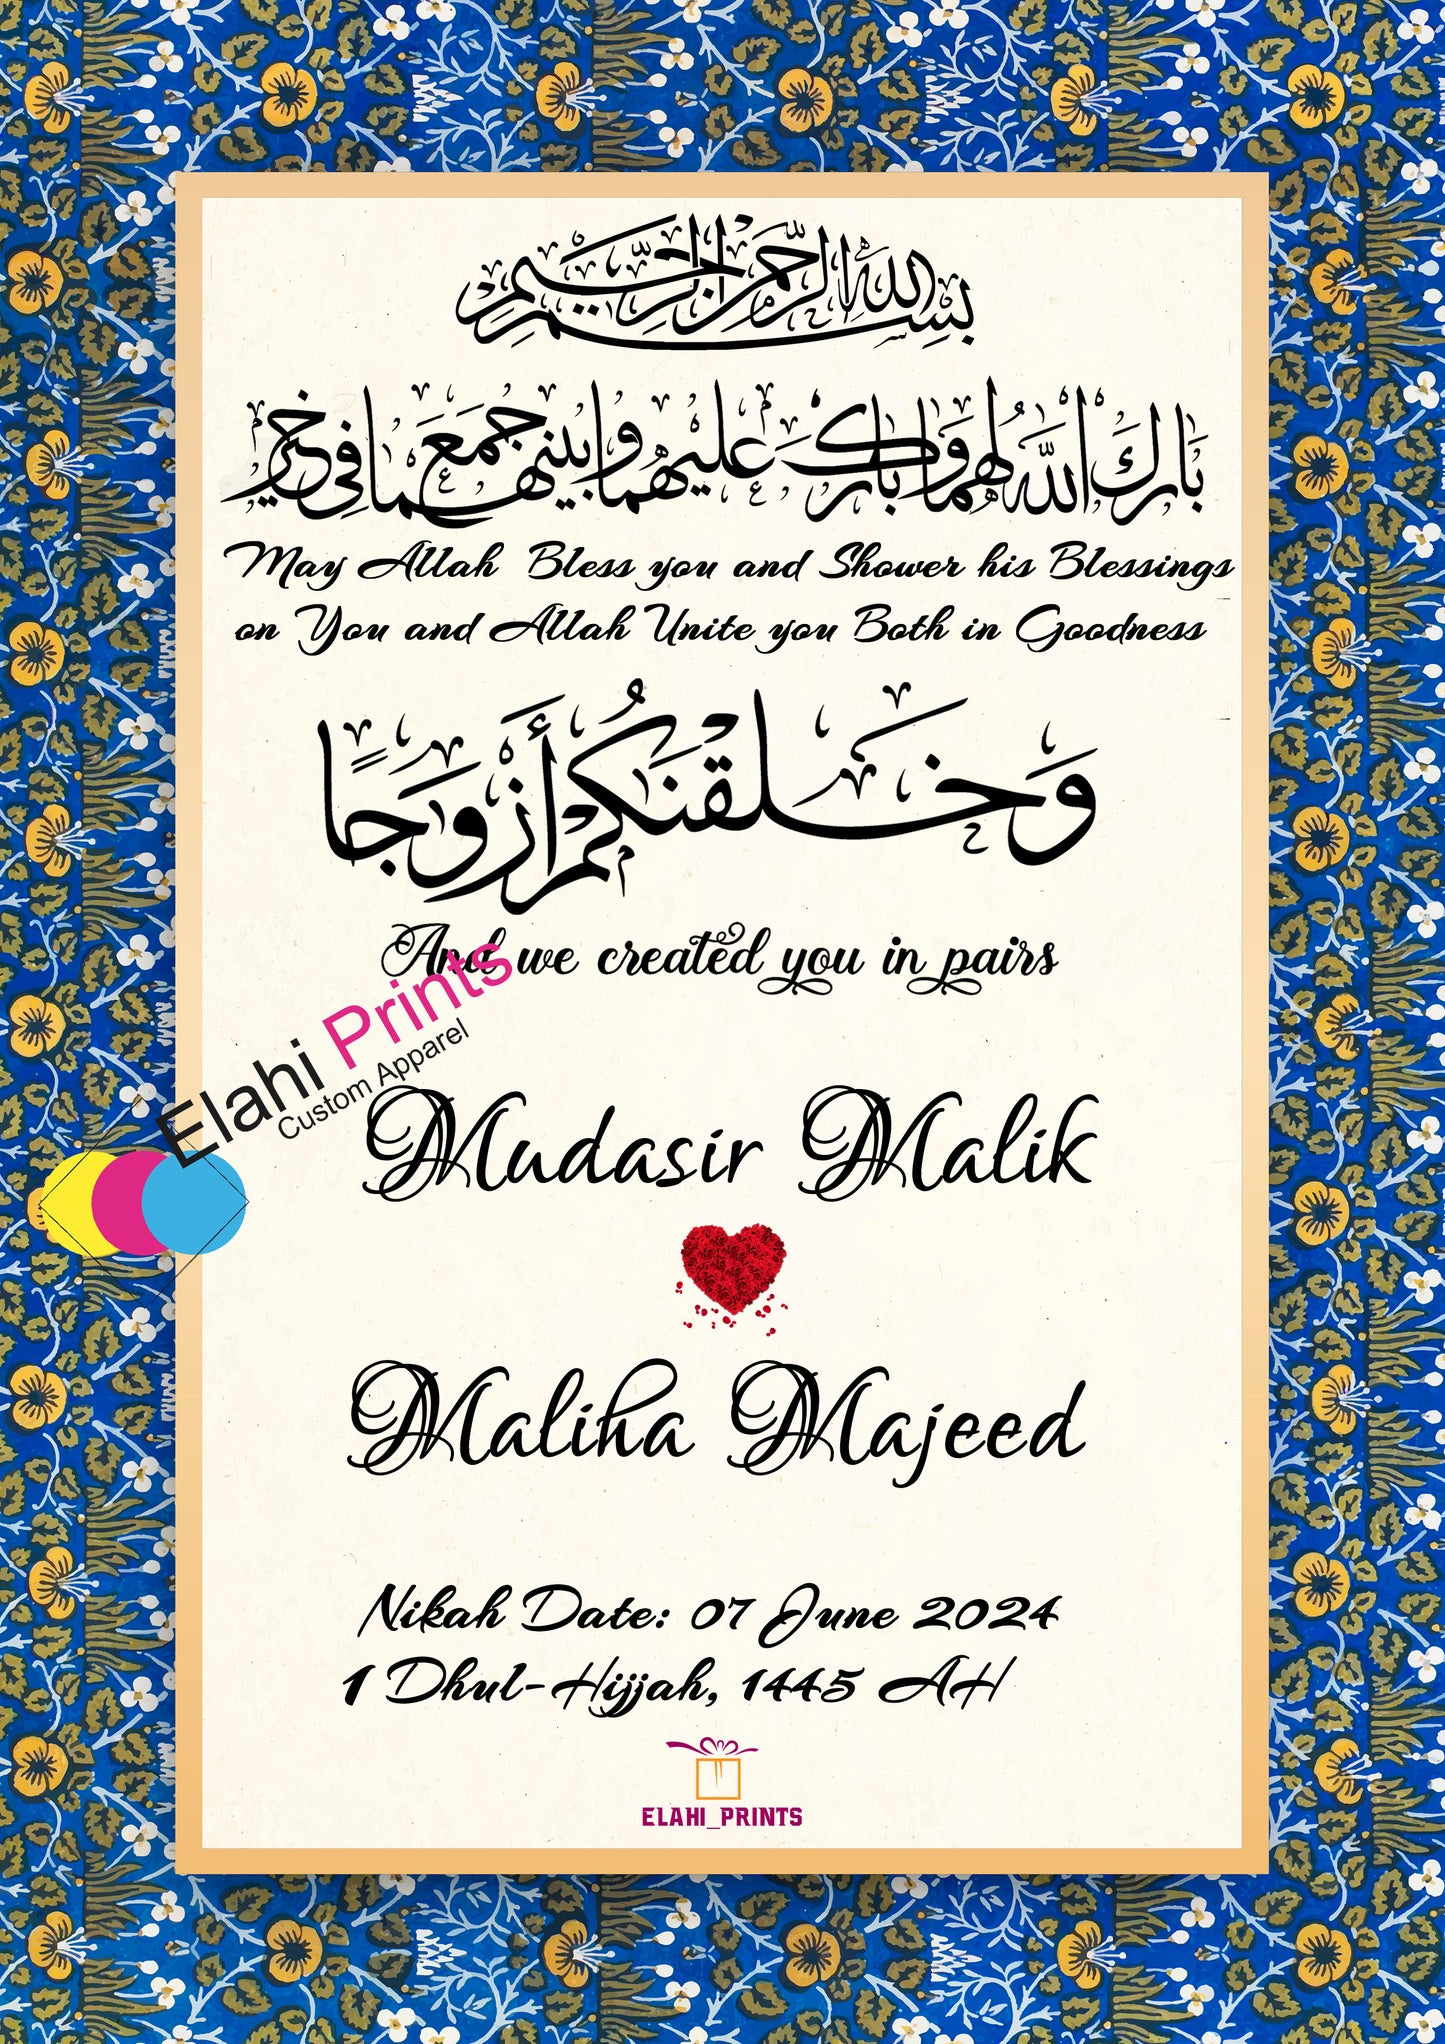 بسم الله الرحمن الرحيم
بَارَكَ اللَّهُ لَهُمَا وَبَارَكَ عَلَيْهِمَا وَبَيْنَهُمَا جَمَعَهُمَا فِي خَيْرٍ
May Allah Bless you and Shower his Blessings
on You and Allah Unite you Both in Goodness
وَخَلَقْنَكُمْ أَزْوَجًا
And we created you in pairs
Elahi Prints
Custom Apparel
Mudasir Malik
Maliha Majeed
Nikah Date: 07 June 2024
1 Dhul-Hijjah, 1445 AH
ELAHI_PRINTS